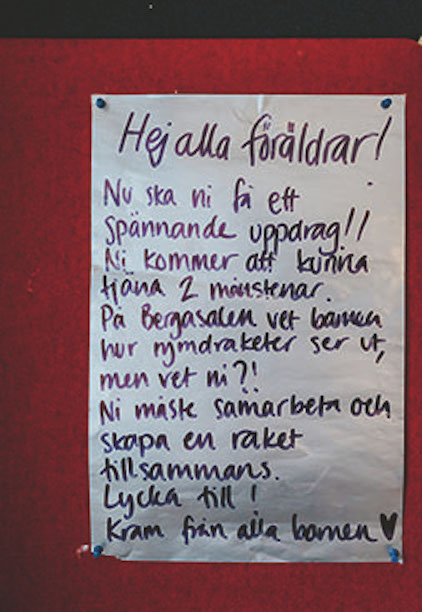 Hej alla föräldrar!
Nu ska ni få ett
spännande uppdrag!!
Ni kommer att kunna
tjäna 2 månstenar.
På Bergasalen vet barnen
hur rymdraketer ser ut,
men vet ni?!
Ni måste samarbeta och
skapa en raket
tillsammans.
Lycka till!
Kram från alla barnen ♥